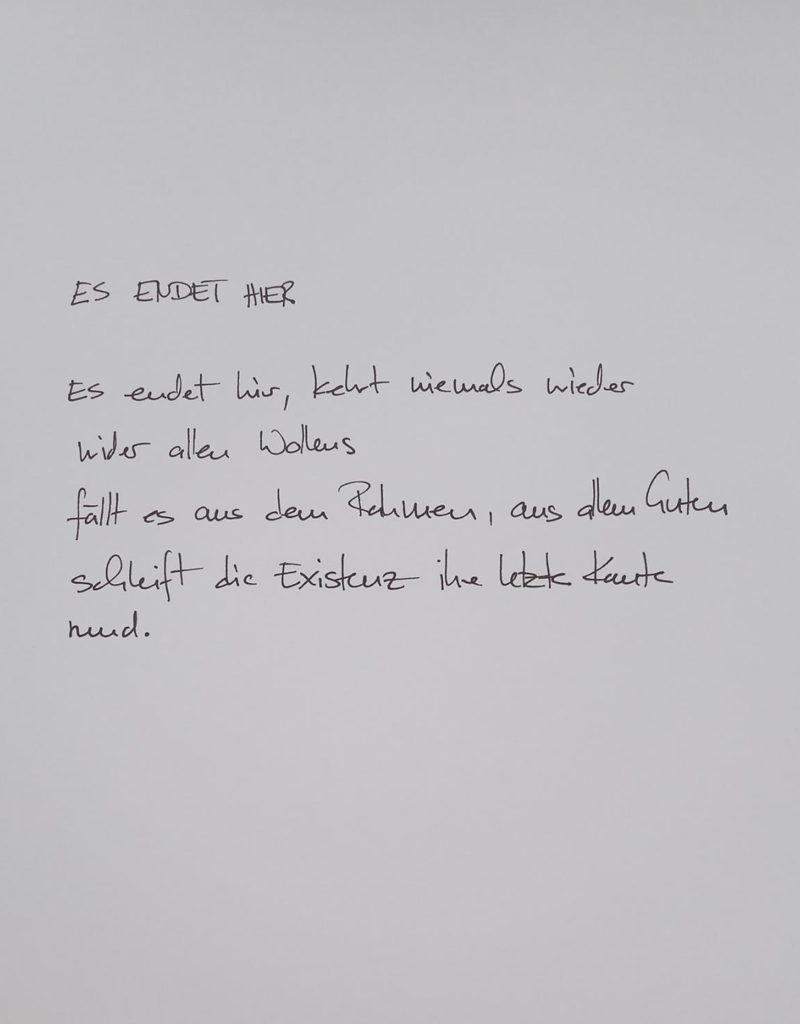 ES ENDET HIER
Es endet hier, kehrt niemals wieder
wider allen Wollens
fällt es aus dem Rahmen, aus allem Guten
schleift die Existenz ihre letzte Kante
rund.